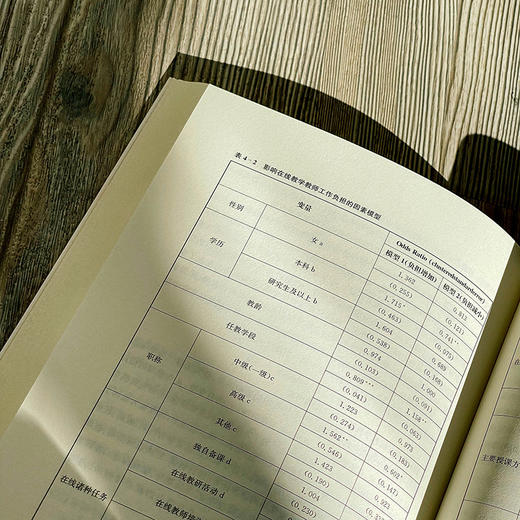 表 4-2 影响在线教学教师工作负担的因素模型
变量 Odds Ratio
模型 1(负担增加) 模型 2(负担减小)
性别 女 a 1.362 0.813
(0.255) (0.121)
学历 本科 b 1.715* 0.741**
(0.463) (0.075)
研究生及以上 b 1.604 0.689
(0.538) (0.168)
教龄 0.974 1.000
(0.103) (0.091)
任教学段 0.809*** 1.158**
(0.041) (0.063)
职称 中级(一级)c 1.223 0.973
(0.274) (0.183)
高级 c 1.562** 0.602*
(0.546) (0.142)
其他 c 1.423 0.923
(0.190)
独自备课 d 1.004
(0.230)
在线诸种任务 在线教研活动 d
在线教师培
主要授课方